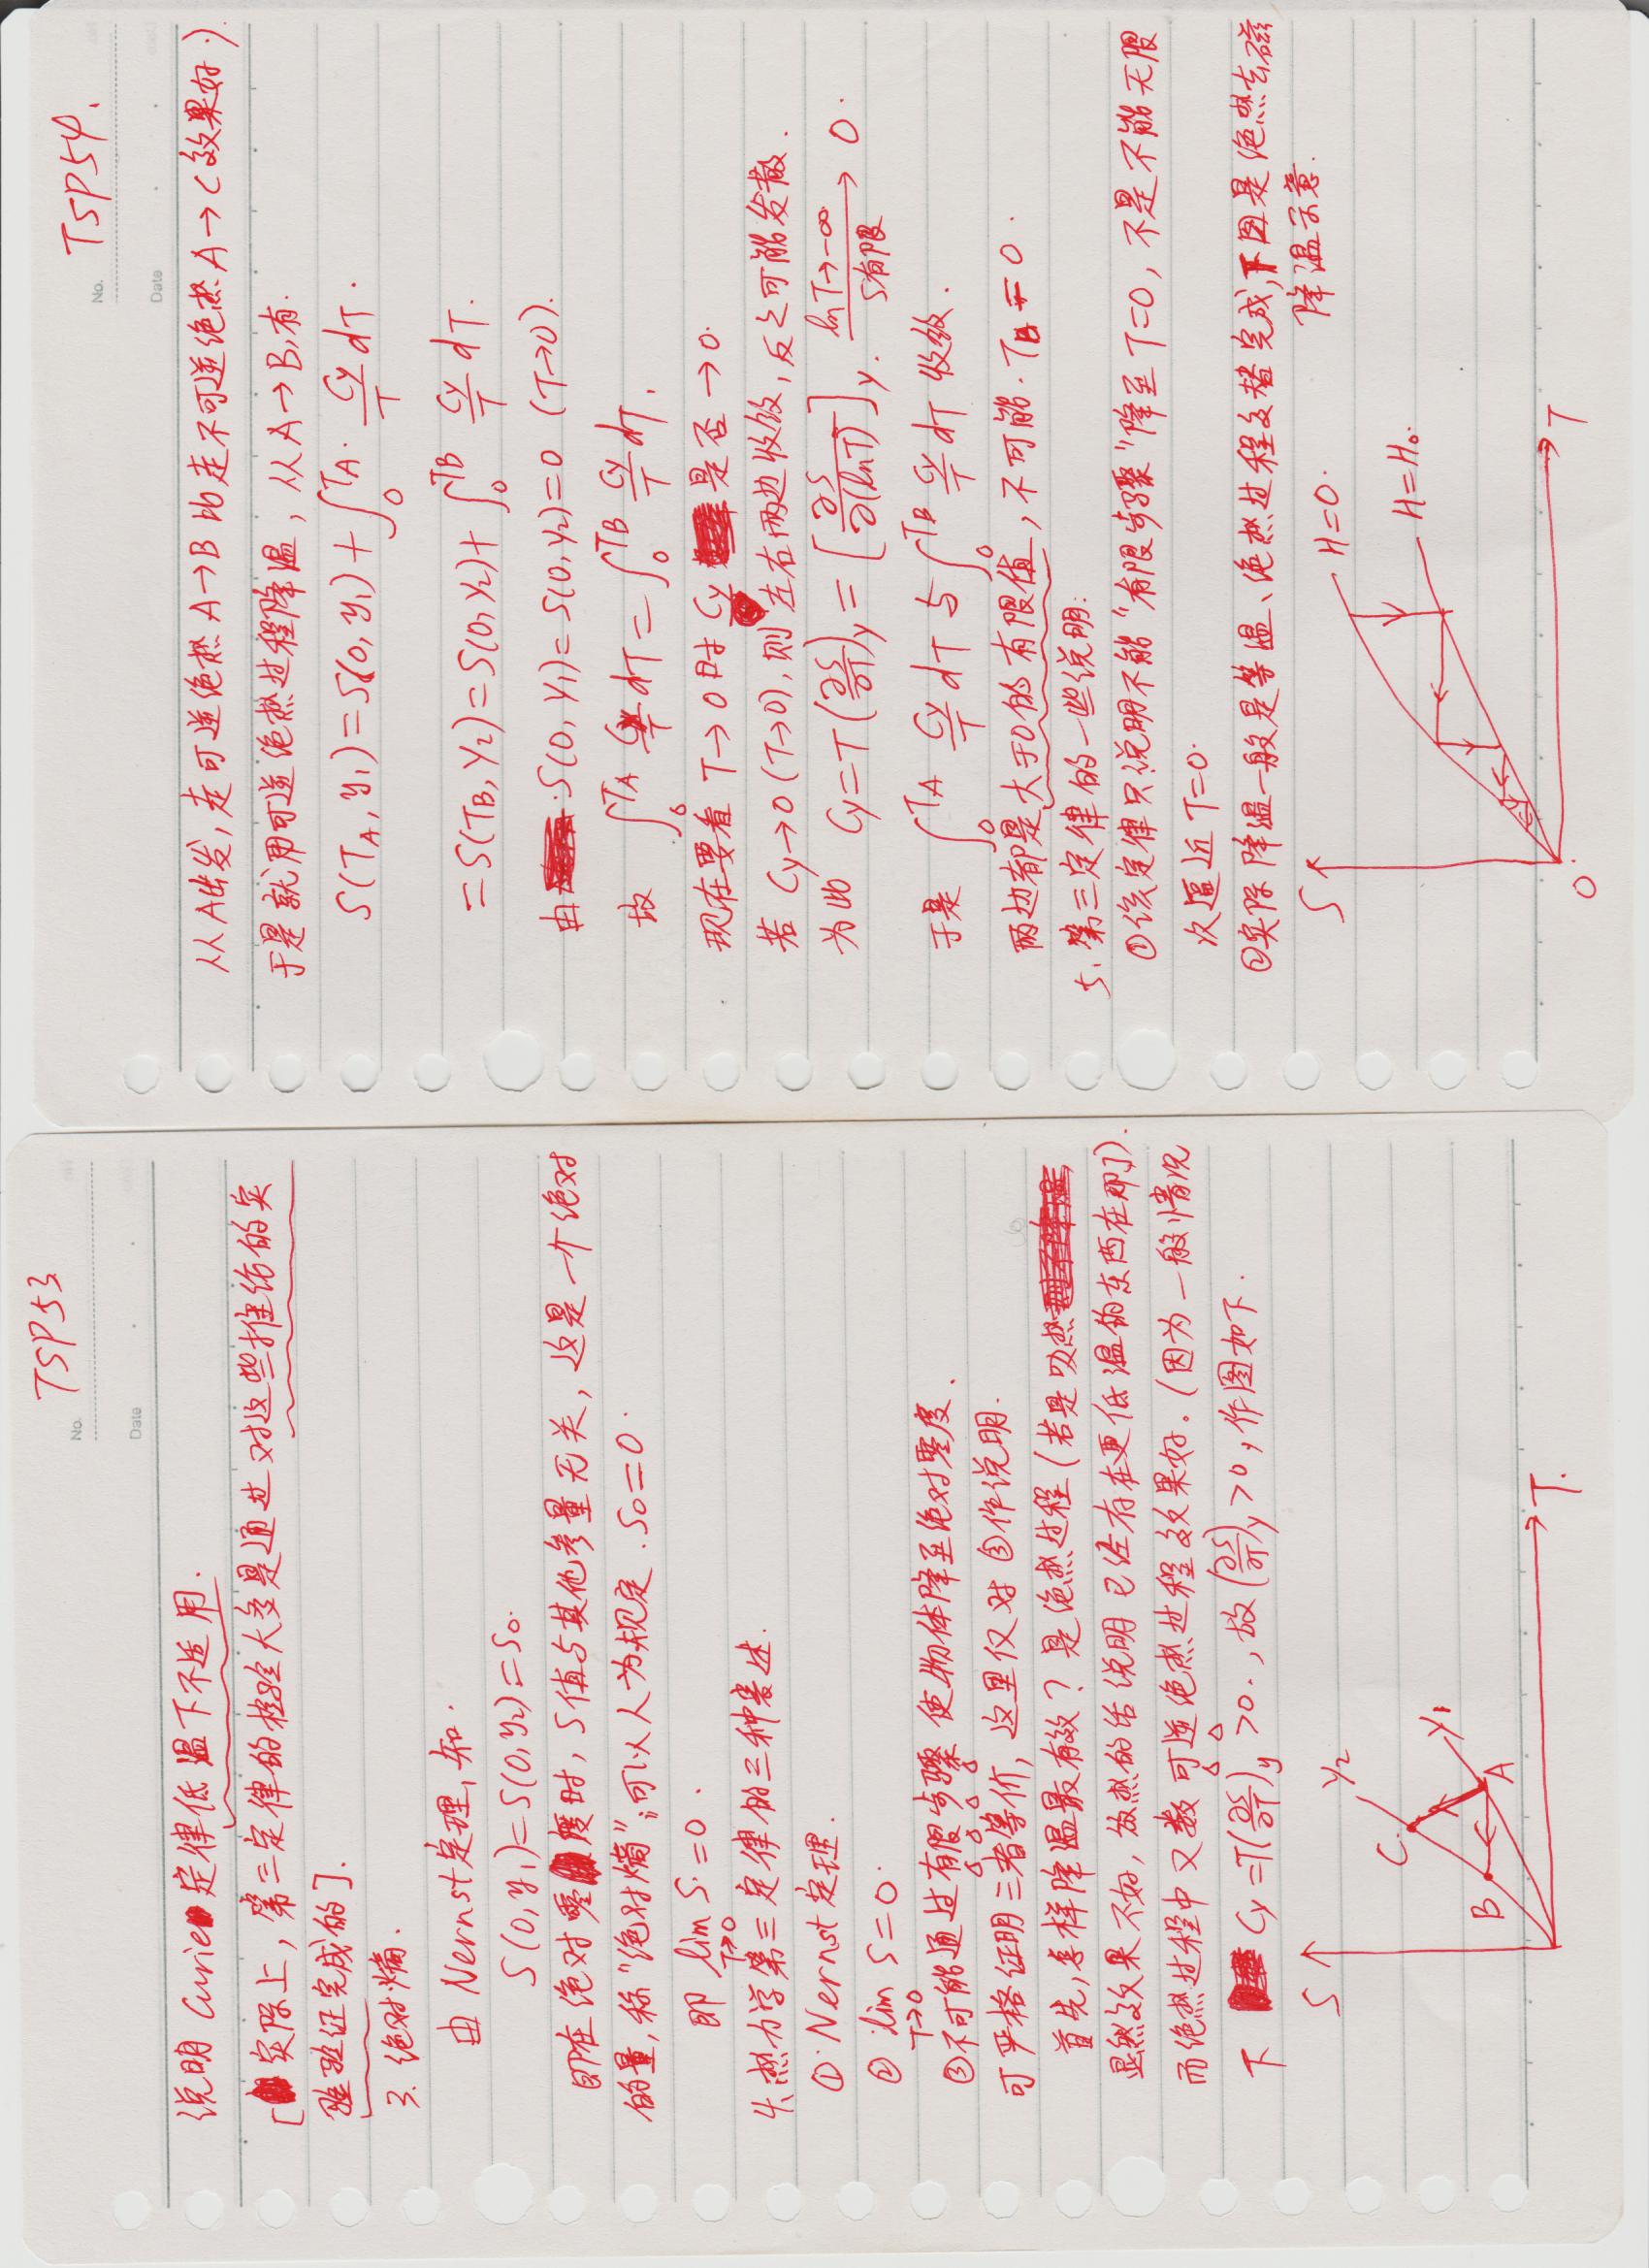 No. TSP53
Date
说明 Curie 定律低温下不适用.
[实际上, 第三定律的检验大多是通过对这些推论的实
验验证完成的].
3. 绝对熵.
由 Nernst定理, 知.
S(0, y₁)=S(0, y₂)=S₀.
即在绝对零度时, S值与其他参量无关, 这是一个绝对
的量, 称"绝对熵", 可以人为规定. S₀=0.
即 lim S=0.
T→0
4. 热力学第三定律的三种表述.
① Nernst定理.
② lim S=0.
T→0
③不可能通过有限步骤使物体降至绝对零度.
可严格证明三者等价, 这里仅对③作说明.
首先, 怎样降温最有效? 是绝热过程(若是吸热
显然效果不好, 放热的话说明已经存在更低温的东西在那了).
而绝热过程中又数可逆绝热过程效果好. (因为一般情况
下 Cy=T(∂S/∂T)y>0., 故(∂S/∂T)y>0, 作图如下.
S
y₂
C.
y₁
B
A
T.
No. TSP54.
Date
从A出发, 走可逆绝热A→B比走不可逆绝热A→C效果好.)
于是就用可逆绝热过程降温, 从A→B, 有.
S(T_A, y₁)=S(0, y₁)+∫₀^{T_A} Cy/T dT.
=S(T_B, y₂)=S(0, y₂)+∫₀^{T_B} Cy/T dT.
由 S(0, y₁)=S(0, y₂)=0 (T→0).
故 ∫₀^{T_A} Cy/T dT=∫₀^{T_B} Cy/T dT.
现在要看 T→0时 Cy 是否→0.
若 Cy→0 (T→0), 则左右两边收敛, 反之可能发散.
为此 Cy=T(∂S/∂T)y=[∂S/∂(lnT)]y. lnT→-∞ S有限 → 0.
于是 ∫₀^{T_A} Cy/T dT 与 ∫₀^{T_B} Cy/T dT 收敛.
两边都是大于0的有限值, 不可能. T_B=0.
5. 第三定律的一些说明:
①该定律只说明不能"有限步骤"降至T=0, 不是不能无限
次逼近T=0.
②实际降温一般是等温、绝热过程交替完成, 下图是绝热去磁
降温示意.
S
H=0.
H=H₀.
O.
T